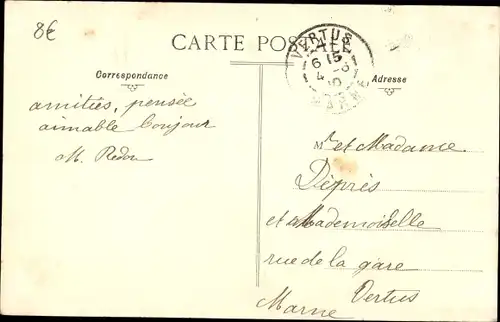 8€
CARTE POSTALE
VERTUS
6 15
4 -5
MARNE
Correspondance
Adresse
amitiés, pensée
aimable bonjour
M. Redon
Mr et Madame
Déprés
et Mademoiselle
rue de la gare
Vertus
Marne